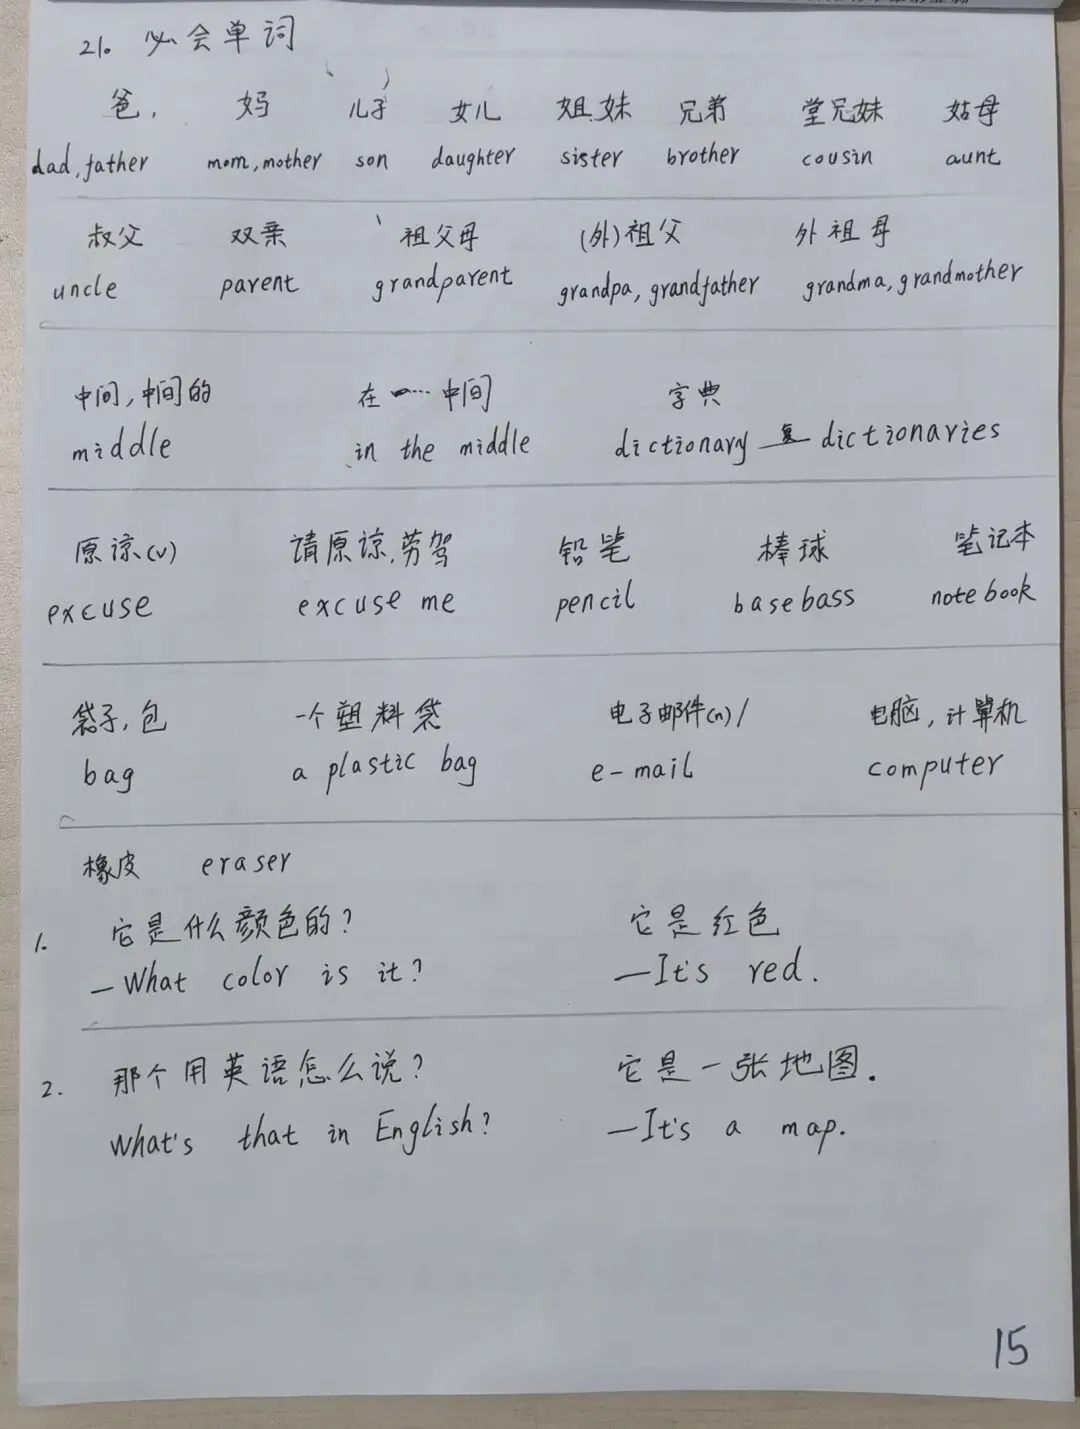 21. 必会单词
爸, 妈 儿子 女儿 姐.妹 兄弟 堂兄妹 姑母
dad, father mom, mother son daughter sister brother cousin aunt
叔父 双亲 祖父母 (外)祖父 外祖母
uncle parent grandparent grandpa, grandfather grandma, grandmother
中间, 中间的 在……中间 字典
middle in the middle dictionary 复 dictionaries
原谅(v) 请原谅,劳驾 铅笔 棒球 笔记本
excuse excuse me pencil basebass notebook
袋子, 包 一个塑料袋 电子邮件(n)/ 电脑, 计算机
bag a plastic bag e-mail computer
橡皮 eraser
1. 它是什么颜色的? 它是红色
—What color is it? —It's red.
2. 那个用英语怎么说? 它是一张地图.
What's that in English? —It's a map.
15